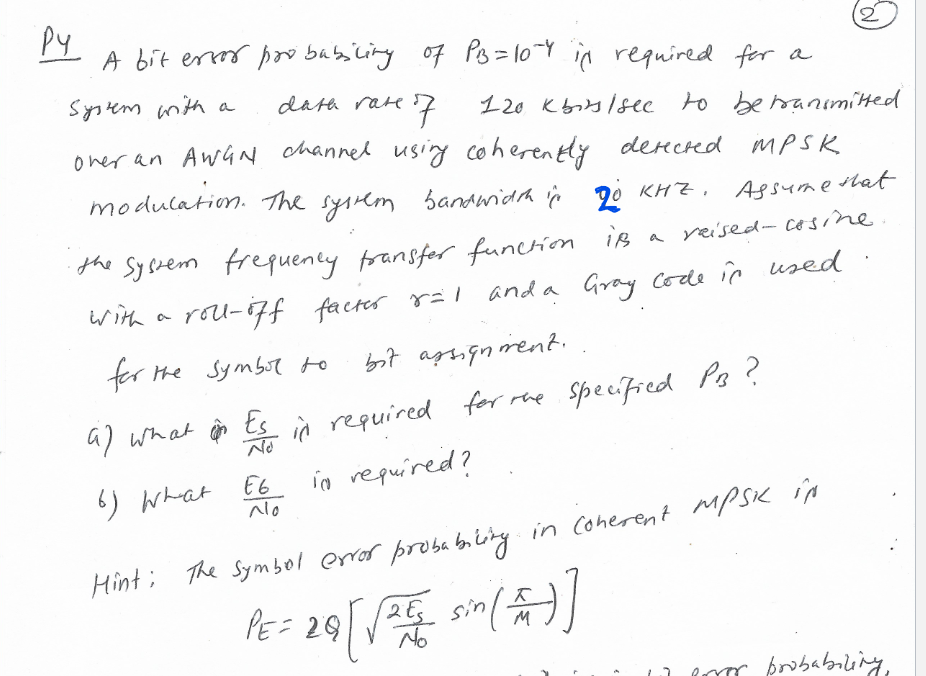 2
P4 A bit error probability of PB=10^-4 is required for a
system with a data rate of 120 kbits/sec to be transmitted
over an AWGN channel using coherently detected MPSK
modulation. The system bandwidth is 20 KHZ. Assume that
the system frequency transfer function is a raised-cosine
with a roll-off factor r=1 and a Gray code is used
for the symbol to bit assignment.
a) What Es/No is required for the specified PB?
b) What Eb/No is required?
Hint: The symbol error probability in coherent MPSK is
PE = 2Q[√(2Es/No) sin(π/M)]
error probability,